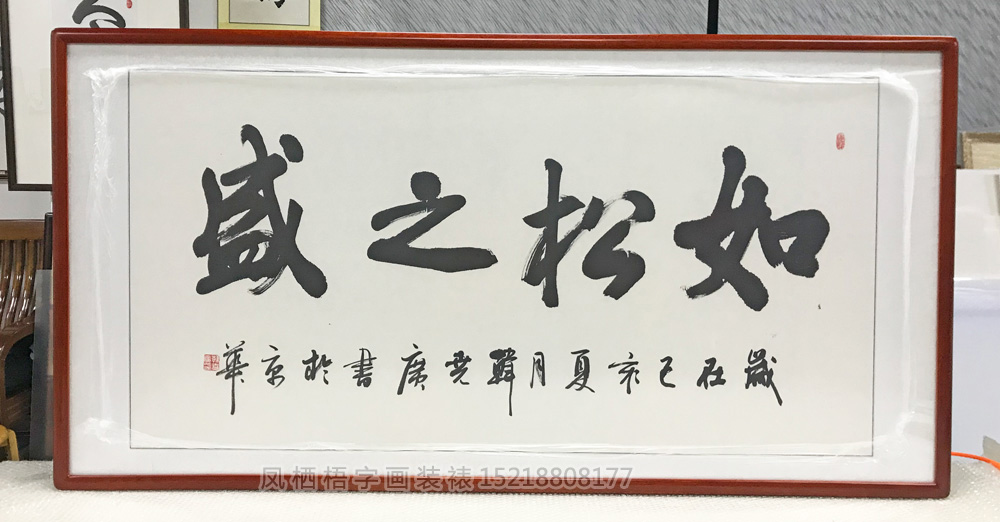 如松之盛
歲在己亥夏月韓堯廣書於京華
凤栖梧字画装裱15218808177